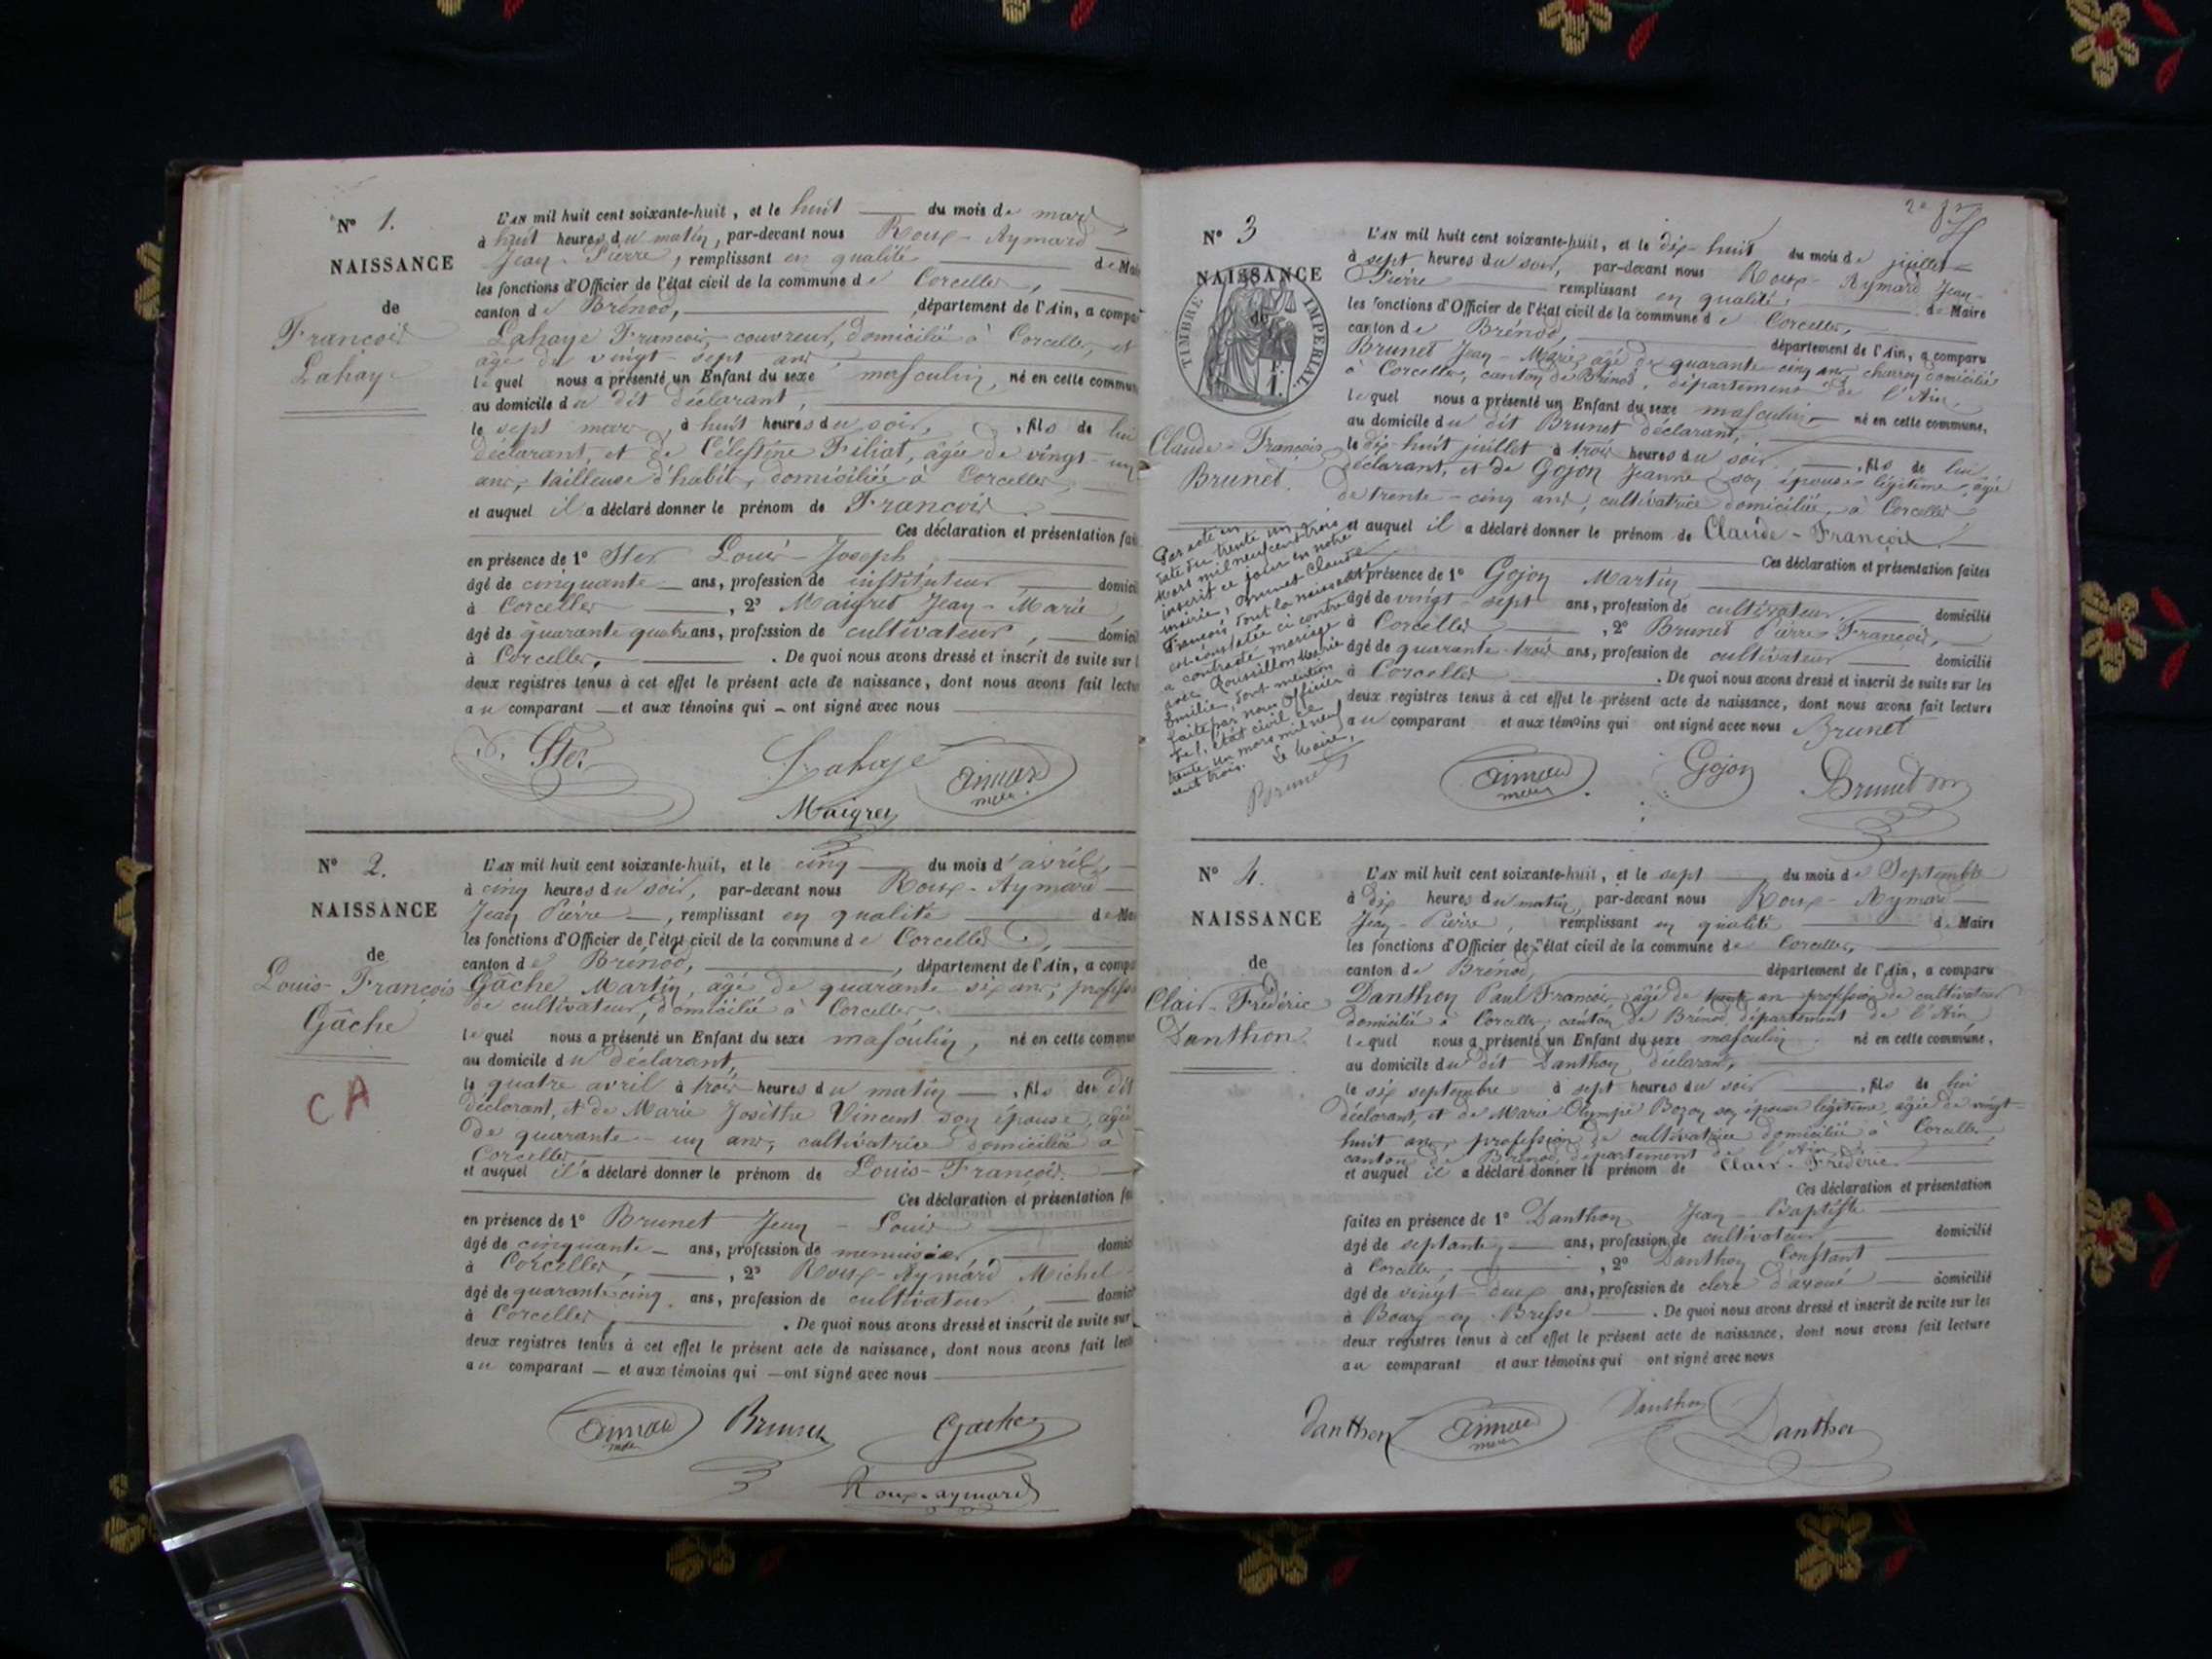 N° 1.
NAISSANCE
de
François
Lahaye
L'AN mil huit cent soixante-huit, et le huit du mois de mars
à huit heures du matin, par-devant nous Roux-Aymard
Jean-Pierre, remplissant en qualité de Mai
les fonctions d'Officier de l'état civil de la commune de Corcelles,
canton de Brénod, département de l'Ain, a compa
Lahaye François, couvreur, domicilié à Corcelles, et
âgé de vingt-sept ans
lequel nous a présenté un Enfant du sexe masculin, né en cette commun
au domicile du dit déclarant,
le sept mars, à huit heures du soir, fils de lui
déclarant, et de Célestine Filiat, âgée de vingt-un
ans, tailleuse d'habits, domiciliée à Corcelles,
et auquel il a déclaré donner le prénom de François.
Ces déclaration et présentation fai
en présence de 1° Ster Louis-Joseph,
âgé de cinquante ans, profession de instituteur domici
à Corcelles, 2° Maigret Jean-Marie,
âgé de quarante quatre ans, profession de cultivateur, domici
à Corcelles. De quoi nous avons dressé et inscrit de suite sur l
deux registres tenus à cet effet le présent acte de naissance, dont nous avons fait lectu
au comparant et aux témoins qui ont signé avec nous
Ster Lahaye Aimard
maire
Maigret
N° 2.
NAISSANCE
de
Louis-François
Gâche
CA
L'AN mil huit cent soixante-huit, et le cinq du mois d'avril,
à cinq heures du soir, par-devant nous Roux-Aymard
Jean Pierre, remplissant en qualité de Mai
les fonctions d'Officier de l'état civil de la commune de Corcelles,
canton de Brénod, département de l'Ain, a compa
Gâche Martin, âgé de quarante six ans, profess
de cultivateur, domicilié à Corcelles.
lequel nous a présenté un Enfant du sexe masculin, né en cette commun
au domicile du déclarant,
le quatre avril à trois heures du matin, fils de dit
déclarant, et de Marie Josèthe Vincent son épouse, âgée
de quarante-un ans, cultivatrice domiciliée à
Corcelles
et auquel il a déclaré donner le prénom de Louis-François.
Ces déclaration et présentation fai
en présence de 1° Brunet Jean-Louis
âgé de cinquante ans, profession de menuisier, domici
à Corcelles, 2° Roux-Aymard Michel
âgé de quarante cinq ans, profession de cultivateur, domici
à Corcelles. De quoi nous avons dressé et inscrit de suite sur
deux registres tenus à cet effet le présent acte de naissance, dont nous avons fait lect
au comparant et aux témoins qui ont signé avec nous
Aimard Brunet Gache
maire
Roux-aymard
N° 3
NAISSANCE
de
TIMBRE IMPERIAL.
Claude-François
Brunet.
Par acte en
date du trente un
mars mil neuf cent trois
inscrit ce jour en notre
mairie, Brunet Claude
François dont la naissance
est constatée ci contre
a contracté mariage
avec Roussillon Marie
Emilie, dont mention
faite par nous Officier
de l'état civil ce
trente un mars mil neuf
cent trois. Le Maire,
Brunet
L'AN mil huit cent soixante-huit, et le dix-huit du mois de juillet
à sept heures du soir, par-devant nous Roux-Aymard Jean-
Pierre remplissant en qualité de Maire
les fonctions d'Officier de l'état civil de la commune de Corcelles,
canton de Brénod, département de l'Ain, a comparu
Brunet Jean-Marie, âgé de quarante-cinq ans, charron domicilié
à Corcelles, canton de Brénod, département de l'Ain,
lequel nous a présenté un Enfant du sexe masculin né en cette commune,
au domicile du dit Brunet déclarant,
le dix-huit juillet à trois heures du soir, fils de lui
déclarant, et de Gojon Jeanne son épouse légitime, âgée
de trente-cinq ans, cultivatrice domiciliée, à Corcelles
et auquel il a déclaré donner le prénom de Claude-François.
Ces déclaration et présentation faites
en présence de 1° Gojon Martin
âgé de vingt-sept ans, profession de cultivateur, domicilié
à Corcelles, 2° Brunet Pierre-François,
âgé de quarante-trois ans, profession de cultivateur domicilié
à Corcelles. De quoi nous avons dressé et inscrit de suite sur les
deux registres tenus à cet effet le présent acte de naissance, dont nous avons fait lecture
au comparant et aux témoins qui ont signé avec nous Brunet
Aimard Gojon Brunet
maire
N° 4.
NAISSANCE
de
Clair-Frédéric
Danthon.
L'AN mil huit cent soixante-huit, et le sept du mois de Septembre
à dix heures du matin, par-devant nous Roux-Aymard
Jean-Pierre, remplissant en qualité de Maire
les fonctions d'Officier de l'état civil de la commune de Corcelles,
canton de Brénod, département de l'Ain, a comparu
Danthon Paul François âgé de trente ans profession de cultivateur
domicilié à Corcelles, canton de Brénod, département de l'Ain
lequel nous a présenté un Enfant du sexe masculin né en cette commune,
au domicile du dit Danthon déclarant,
le six septembre à sept heures du soir, fils de lui
déclarant, et de Marie Olympe Bozon son épouse légitime, âgée de vingt-
huit ans, profession de cultivatrice domiciliée à Corcelles,
canton de Brénod, département de l'Ain,
et auquel il a déclaré donner le prénom de Clair-Frédéric
Ces déclaration et présentation
faites en présence de 1° Danthon Jean-Baptiste
âgé de septante ans, profession de cultivateur domicilié
à Corcelles, 2° Danthon Constant
âgé de vingt-deux ans, profession de clerc d'avoué domicilié
à Bourg-en-Bresse. De quoi nous avons dressé et inscrit de suite sur les
deux registres tenus à cet effet le présent acte de naissance, dont nous avons fait lecture
au comparant et aux témoins qui ont signé avec nous
Danthon Aimard Danthon Danthon
maire